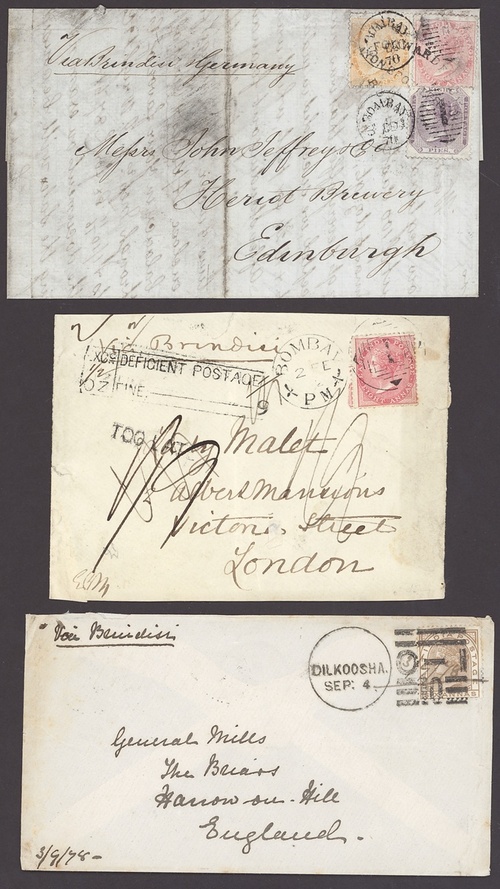 Via Brindisi Germany
BOMBAY
70
BOMBAY
70
Messrs John Jeffrey & Co
Heriot Brewery
Edinburgh
Via Brindisi
DEFICIENT POSTAGE
OZ FINE
9
BOMBAY
2 FE
P.M
TOO LATE
Lady Malet
Albert Mansions
Victoria Street
London
Via Brindisi
DILKOOSHA.
SEP: 4.
General Mills
The Briars
Harrow-on-Hill
England.
3/9/78-